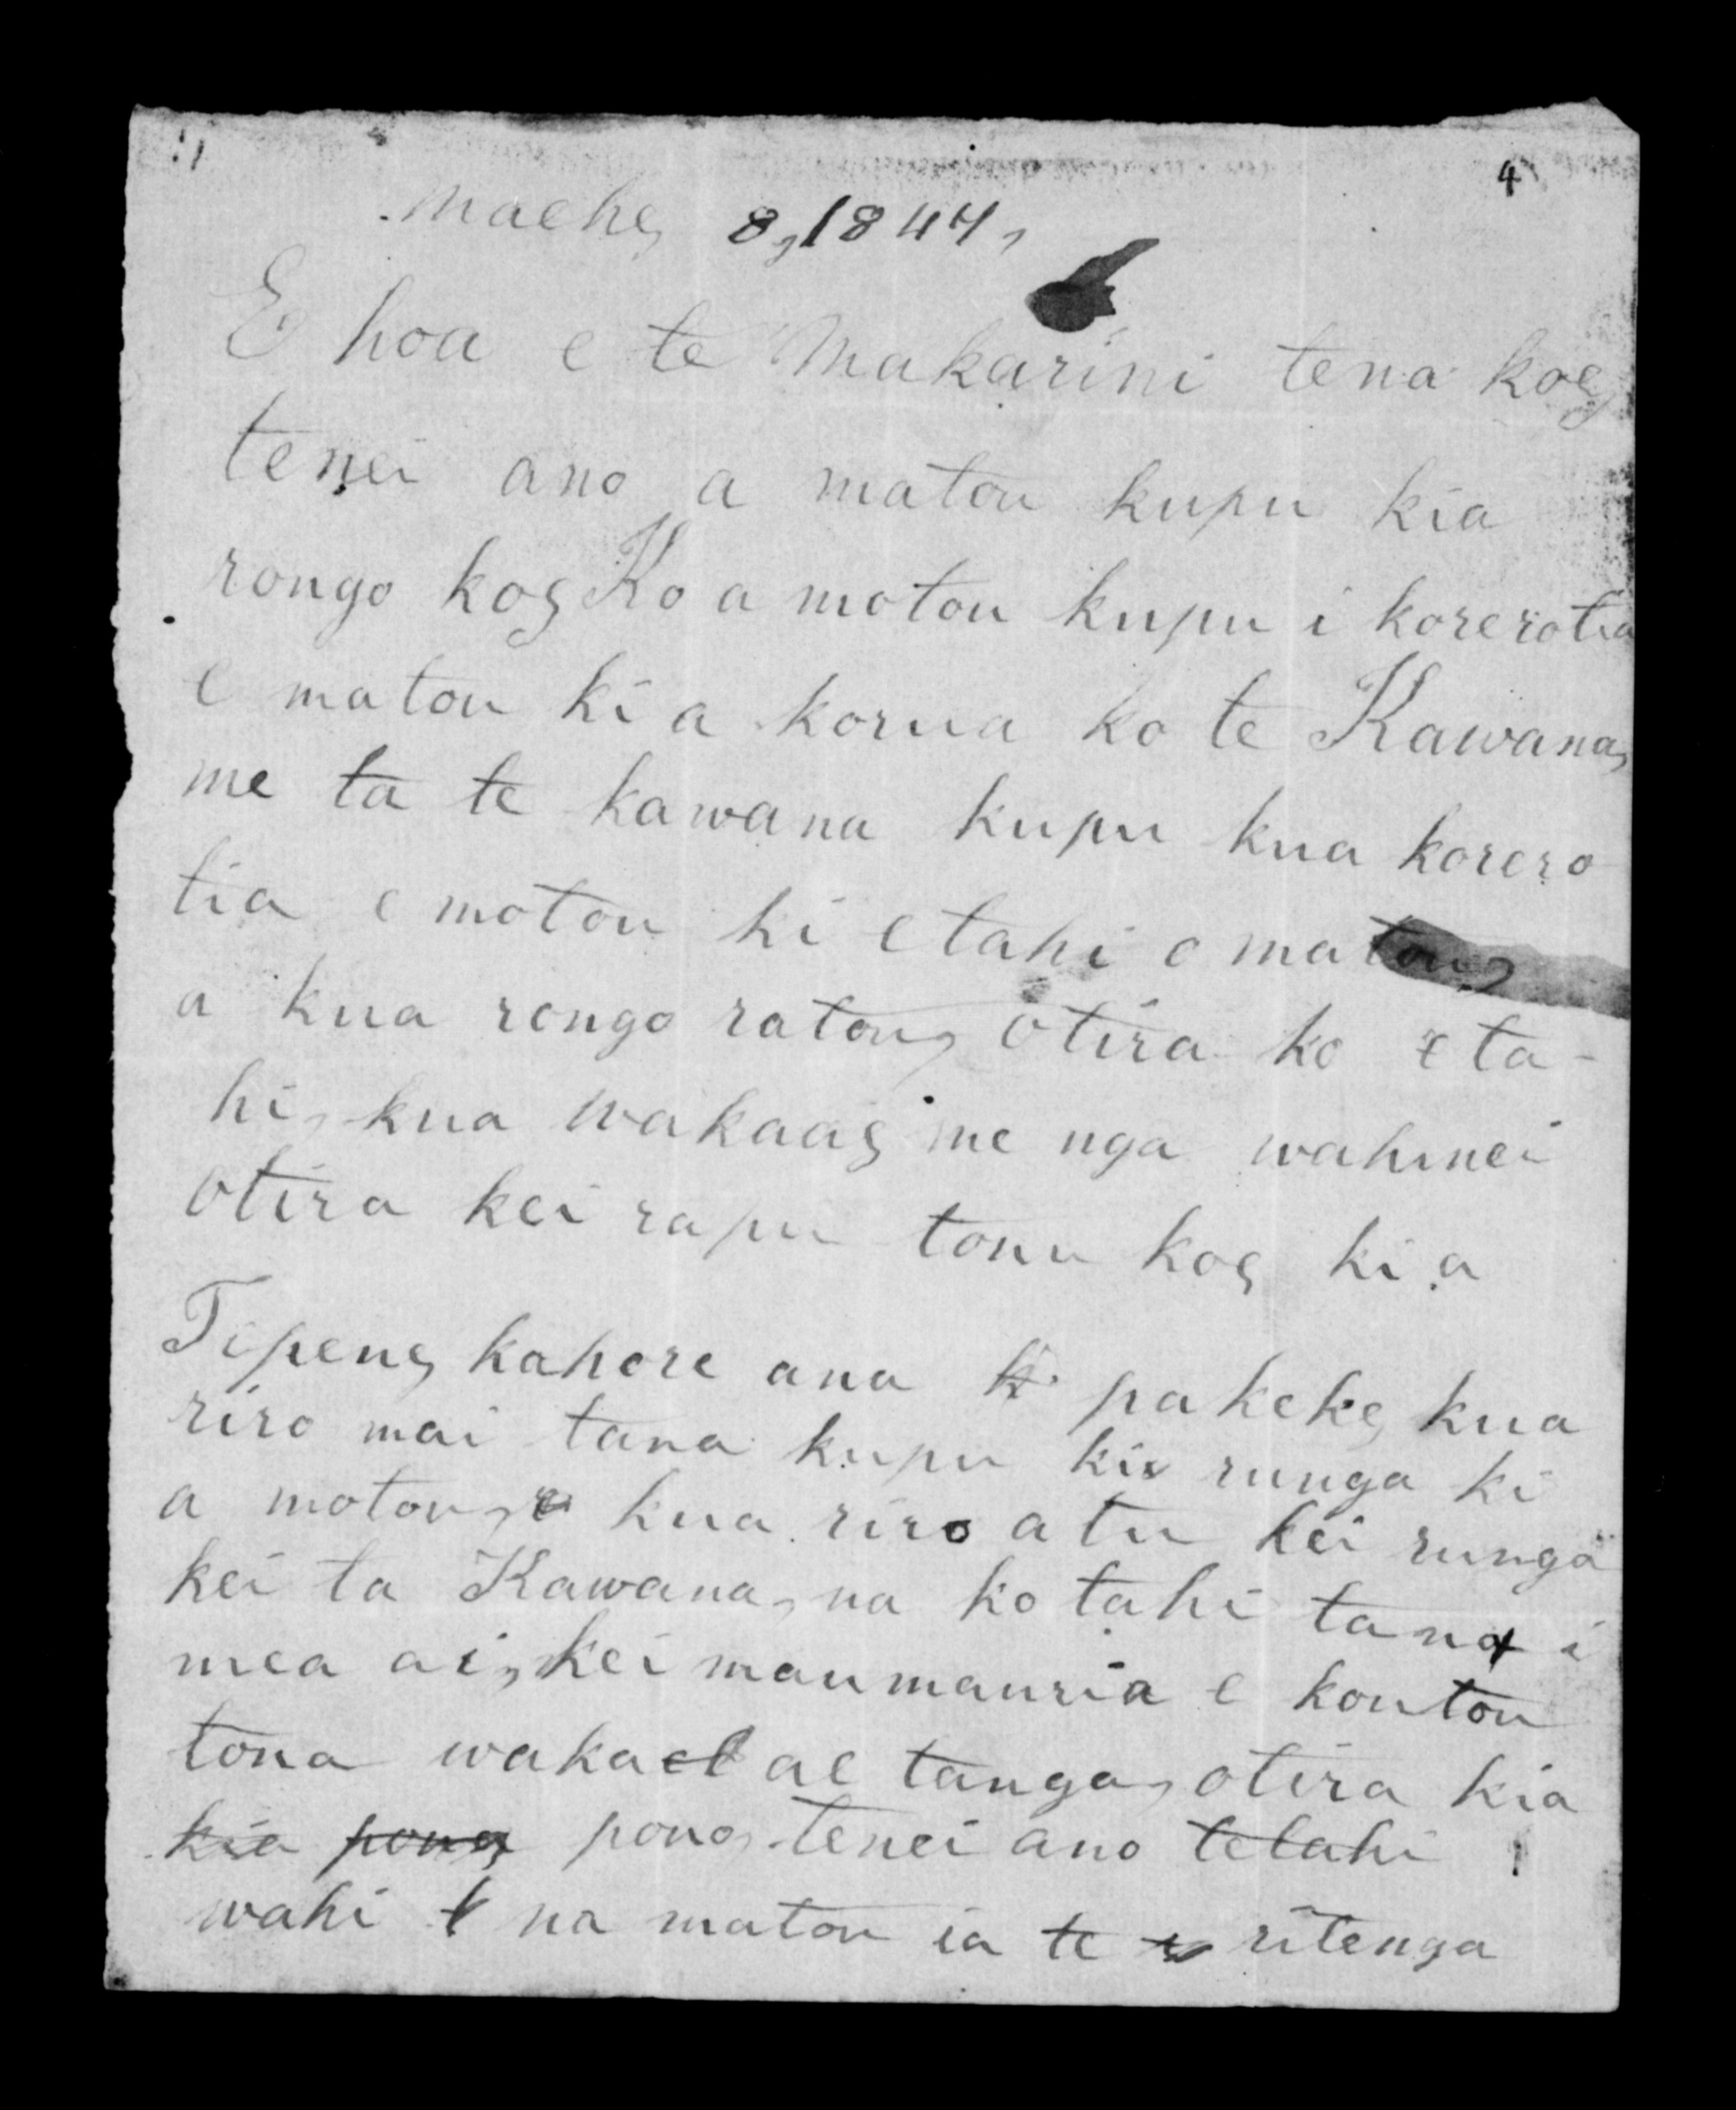 4
Maehe, 8, 1847,
E hoa e te Makarini tena koe,
tenei ano a matou kupu kia
rongo koe, Ko a motou kupu i korerotia
e matou ki a korua ko te Kawana,
me ta te kawana kupu kua korero
tia e motou ki etahi o matou,
a kua rongo ratou, otira ko eta-
hi, kua wakaae, me nga wahinei
otira kei rapu tonu koe, ki a
Tipene, kahore ana pakeke, kua
riro mai tana kupu ki runga ki
a motou, kua riro atu kei runga
kei ta Kawana, na ko tahi tana i
mea ai, kei maumauria e koutou
tona waka ae tanga, otira kia
kia pono, pono, tenei ano tetahi
wahi na matou ia te ritenga